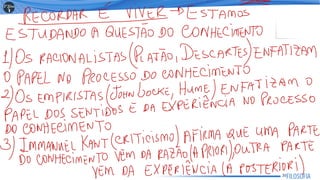 RECORDAR É VIVER → ESTAMOS
ESTUDANDO A QUESTÃO DO CONHECIMENTO
1) OS RACIONALISTAS (PLATÃO, DESCARTES) ENFATIZAM
O PAPEL NO PROCESSO DO CONHECIMENTO
2) OS EMPIRISTAS (JOHN LOCKE, HUME) ENFATIZAM O
PAPEL DOS SENTIDOS E DA EXPERIÊNCIA NO PROCESSO
DO CONHECIMENTO
3) IMMANUEL KANT (CRITICISMO) AFIRMA QUE UMA PARTE
DO CONHECIMENTO VEM DA RAZÃO (A PRIORI) OUTRA PARTE
VEM DA EXPERIÊNCIA (A POSTERIORI)
FILOSOFIA